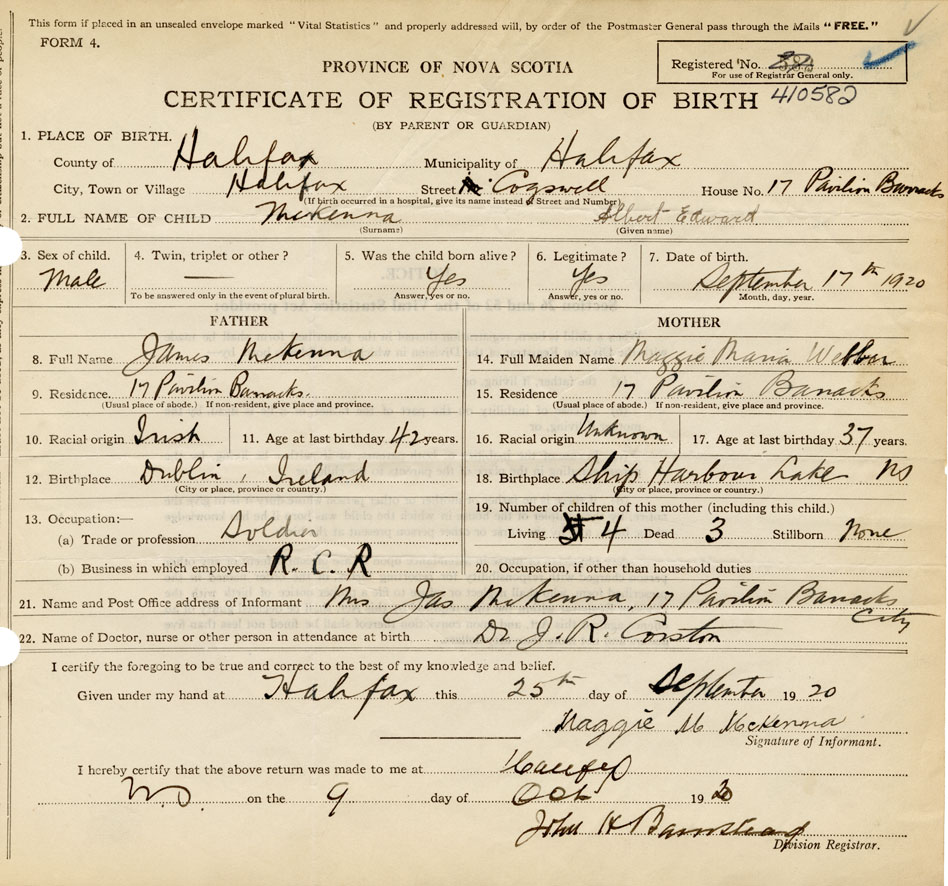 This form if placed in an unsealed envelope marked "Vital Statistics" and properly addressed will, by order of the Postmaster General pass through the Mails "FREE."
FORM 4.
Registered No.
For use of Registrar General only.
PROVINCE OF NOVA SCOTIA
CERTIFICATE OF REGISTRATION OF BIRTH 410582
(BY PARENT OR GUARDIAN)
1. PLACE OF BIRTH.
County of Halifax Municipality of Halifax
City, Town or Village Halifax Street Cogswell House No. 17 Pavilion Barracks
(If birth occurred in a hospital, give its name instead of Street and Number)
2. FULL NAME OF CHILD McKenna Albert Edward
(Surname) (Given name)
3. Sex of child. 4. Twin, triplet or other? 5. Was the child born alive? 6. Legitimate? 7. Date of birth.
Male — Yes Yes September 17th 1920
To be answered only in the event of plural birth. Answer, yes or no. Answer, yes or no. Month, day, year.
FATHER MOTHER
8. Full Name James McKenna 14. Full Maiden Name Maggie Maria Webber
9. Residence 17 Pavilion Barracks. 15. Residence 17 Pavilion Barracks
(Usual place of abode.) If non-resident, give place and province. (Usual place of abode.) If non-resident, give place and province.
10. Racial origin Irish 11. Age at last birthday 42 years. 16. Racial origin Unknown 17. Age at last birthday 37 years.
12. Birthplace Dublin, Ireland 18. Birthplace Ship Harbour Lake NS
(City or place, province or country.) (City or place, province or country.)
13. Occupation:— 19. Number of children of this mother (including this child.)
(a) Trade or profession Soldier Living 4 Dead 3 Stillborn None
(b) Business in which employed R. C. R 20. Occupation, if other than household duties
21. Name and Post Office address of Informant Mrs Jas McKenna, 17 Pavilion Barracks City
22. Name of Doctor, nurse or other person in attendance at birth Dr J. R. Corston
I certify the foregoing to be true and correct to the best of my knowledge and belief.
Given under my hand at Halifax this 25th day of September 1920
Maggie M McKenna
Signature of Informant.
I hereby certify that the above return was made to me at Halifax
N.S. on the 9 day of Oct 1920
John H Barnstead
Division Registrar.